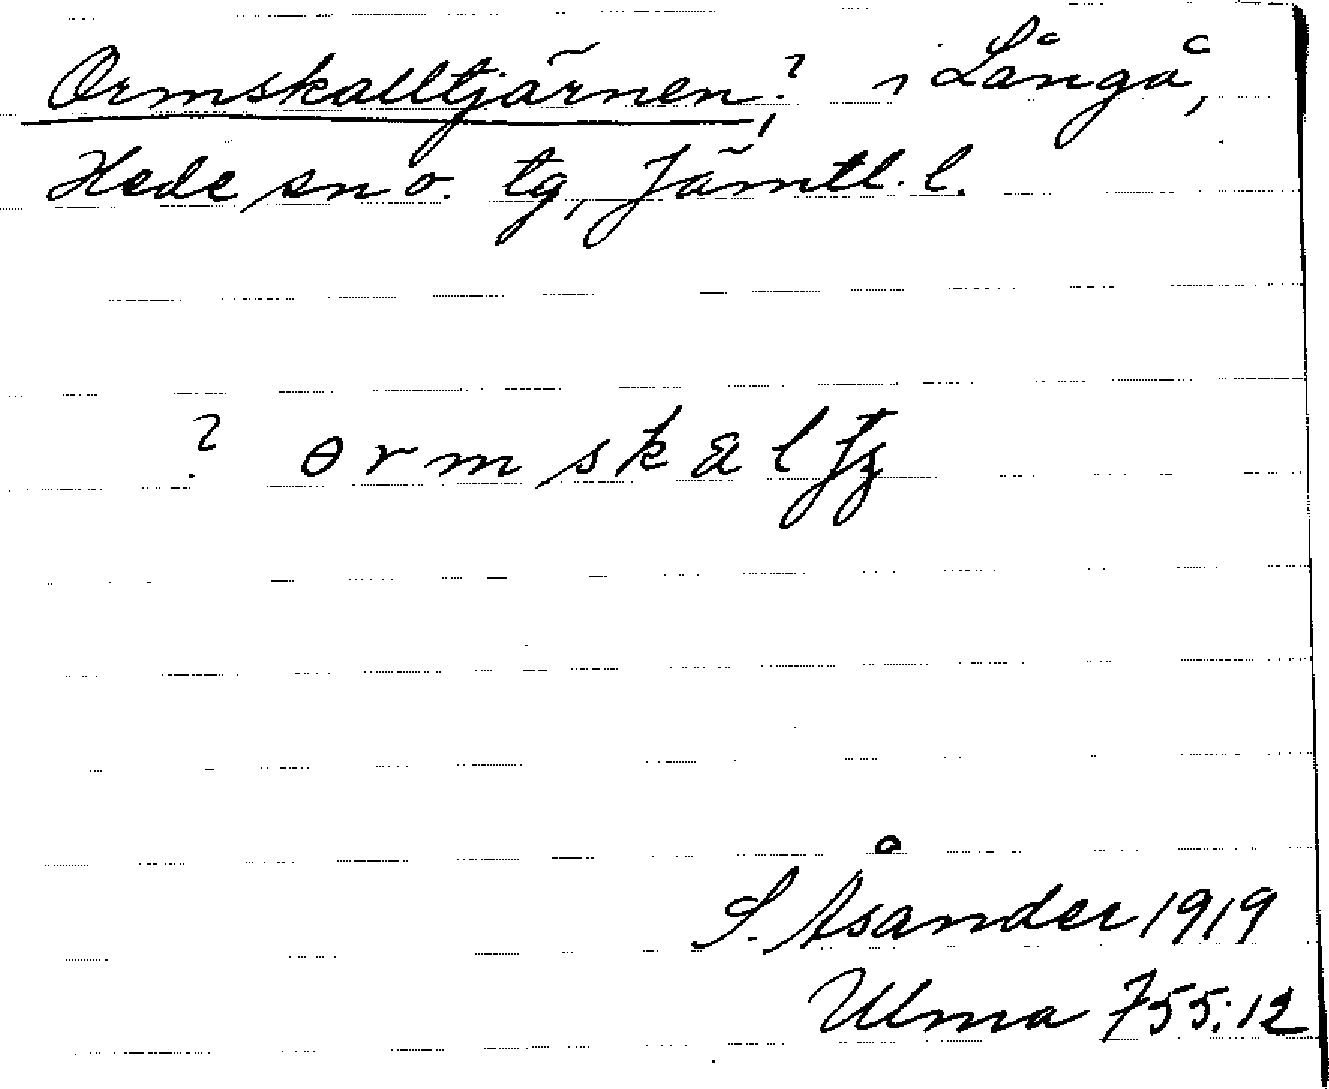 Ormskalltjärnen,? i Långå,
Hede sn o. tg, Jämtl. l.
? ɵrmskal
S. Åsander 1919
Ulma 755:12